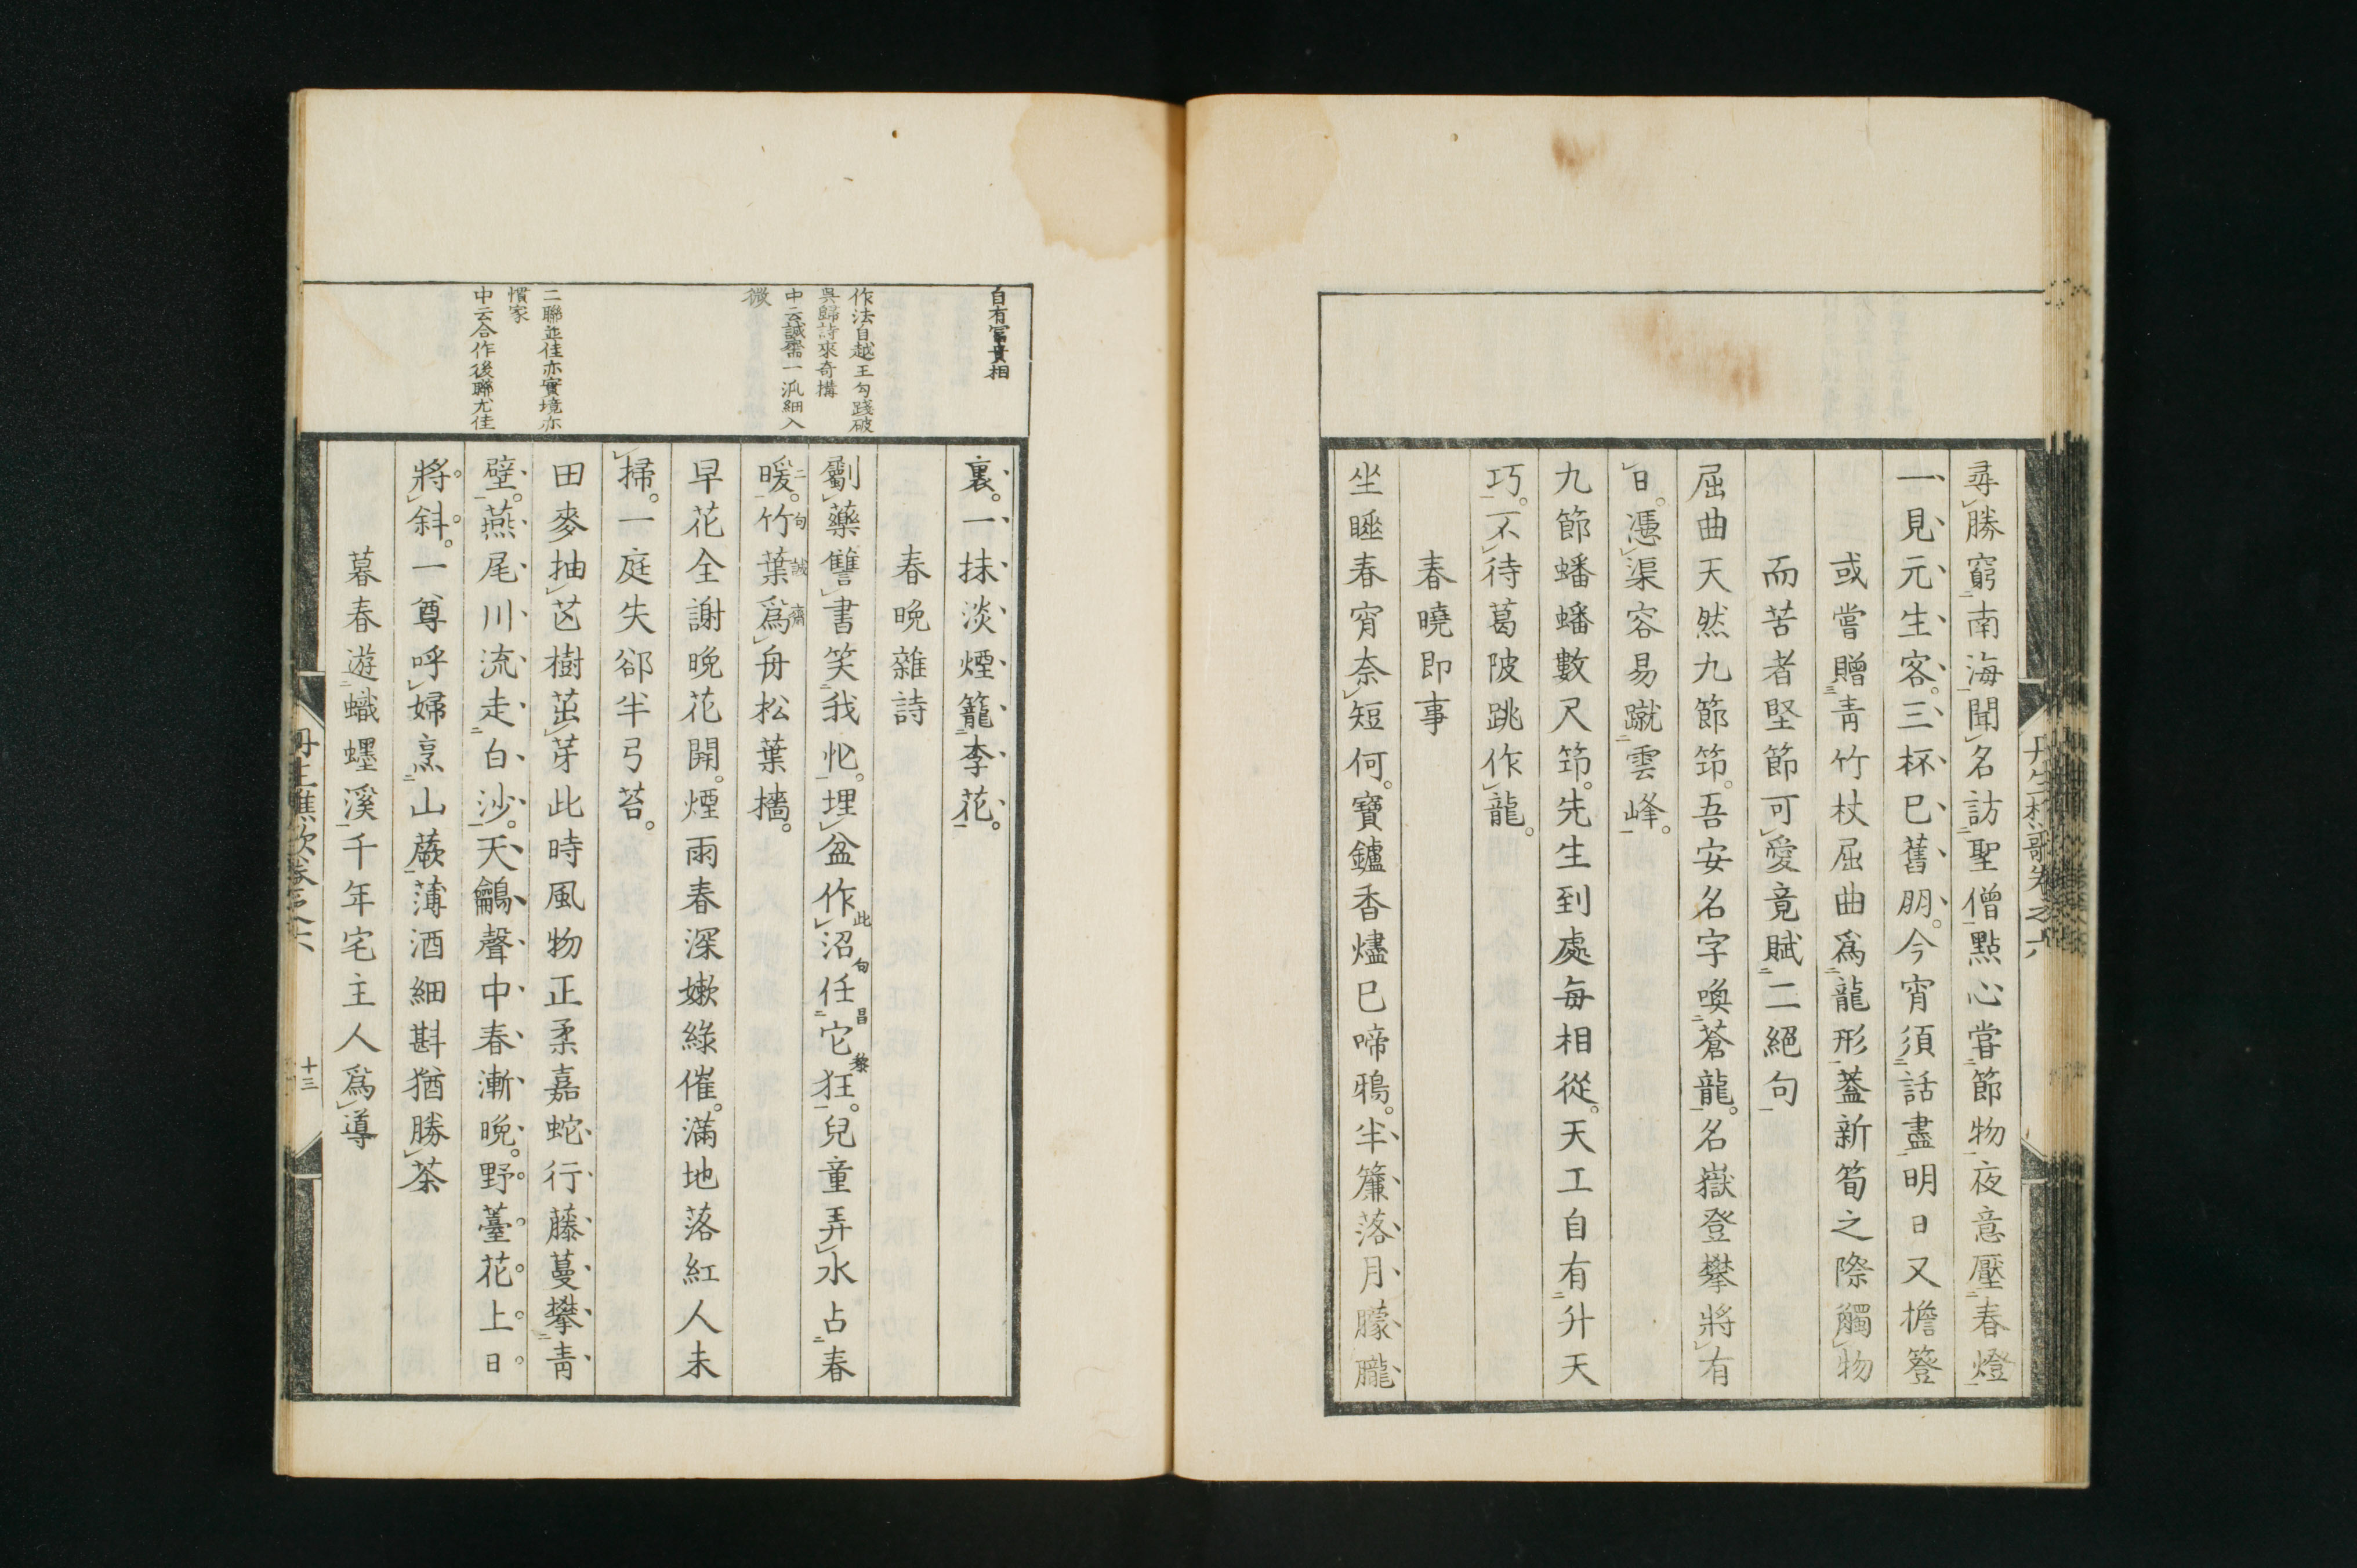 尋勝窮南海聞名訪聖僧點心嘗節物夜意壓春燈
一見元生客。三杯已舊朋。今宵須話盡明日又擔簦
或嘗贈青竹杖屈曲爲龍形蓋新筍之際觸物
而苦者堅節可愛竟賦二絕句
屈曲天然九節筇。吾安名字喚蒼龍。名嶽登攀將有
日。憑渠容易蹴雲峰。
九節蟠蟠數尺筇。先生到處每相從。天工自有升天
巧。不待葛陂跳作龍。
春曉即事
坐睡春宵奈短何。寶鑪香燼已啼鴉。半簾落月朦朧
裏。一抹淡煙籠李花。
春晚雜詩
劚藥讐書笑我忙。埋盆作沼任它狂。兒童弄水占春
暖。竹葉爲舟松葉檣。
早花全謝晚花開。煙雨春深嫩綠催。滿地落紅人未
掃。一庭失卻半弓苔。
田麥抽芒樹茁芽此時風物正柔嘉蛇行藤蔓攀青
壁。燕尾川流走白沙。天鷚聲中春漸晚。野薹花上日
將斜。一尊呼婦烹山蕨薄酒細斟猶勝茶
暮春遊蟙䘃溪千年宅主人爲導
自有富貴相
作法自越王勾踐破
吳歸詩來奇構
中云誠齋一派細入
微
二聯並佳亦實境亦
慣家
中云合作後聯尤佳
此句昌黎
二句誠齋
丹生樵歌卷之六
十三